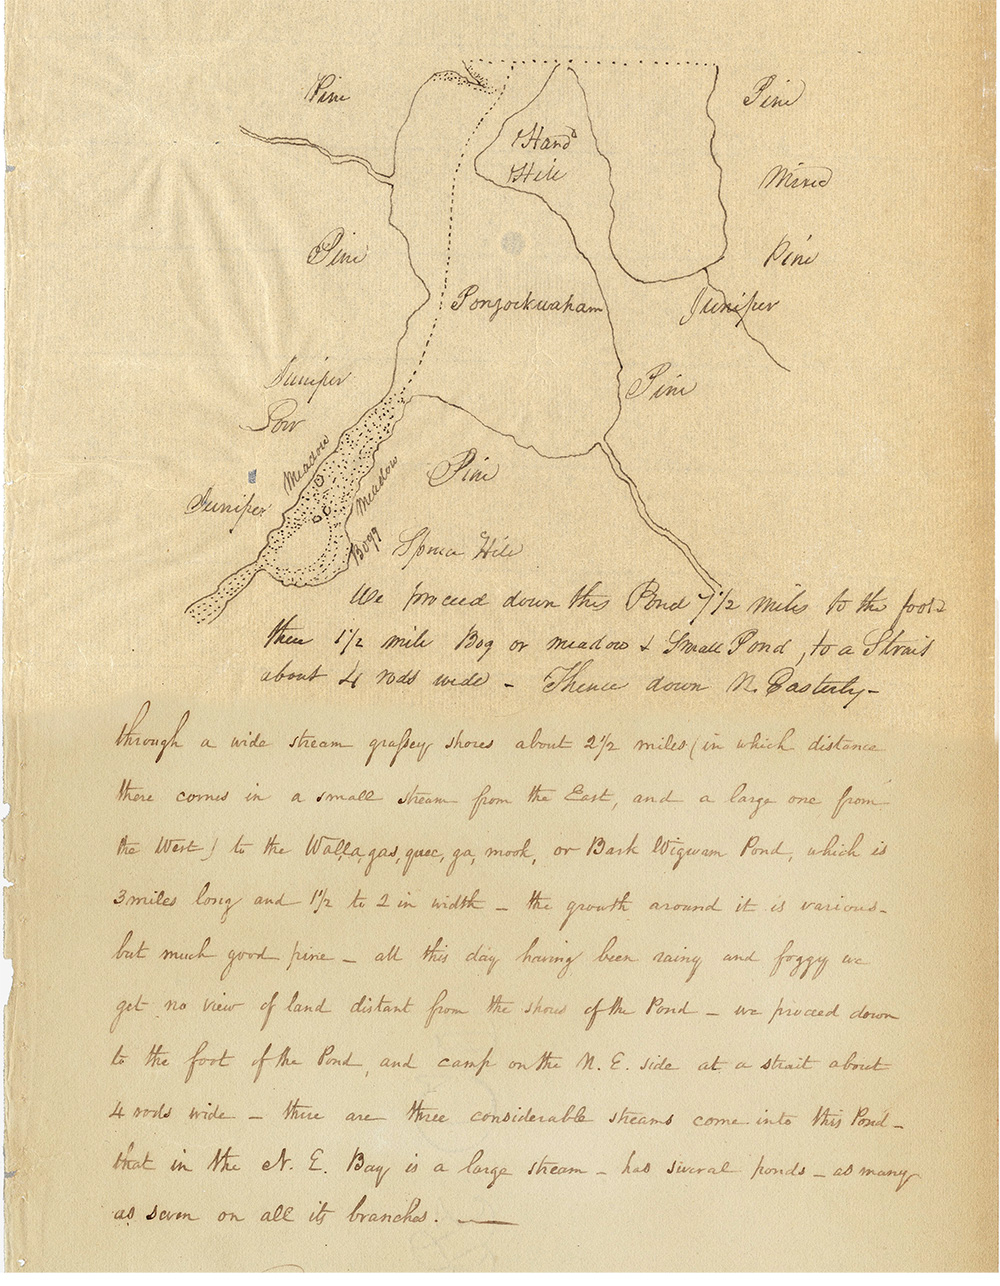 Pine
Pine
Hard
Hill
Mixed
Pine
Pine
Pongockwaham
Juniper
Juniper
Low
Pine
Meadow
Meadow
Pine
Juniper
Bogg
Spruce Hill
We proceed down this Pond 7 1/2 miles to the foot
then 1 1/2 mile Bog or meadow & Small Pond, to a Strait
about 4 rods wide - Thence down N. Easterly -
through a wide stream grassey shores about 2 1/2 miles (in which distance
there comes in a small stream from the East, and a large one from
the West) to the Walla,gas,quec,ga,mook, or Bark Wigwam Pond, which is
3 miles long and 1 1/2 to 2 in width - the growth around it is various -
but much good pine - all this day having been rainy and foggy we
get no view of land distant from the shores of the Pond - we proceed down
to the foot of the Pond, and camp on the N. E. side at a strait about
4 rods wide - there are three considerable streams come into this Pond -
that in the N. E. Bay is a large stream - has several ponds - as many
as seven on all its branches. -